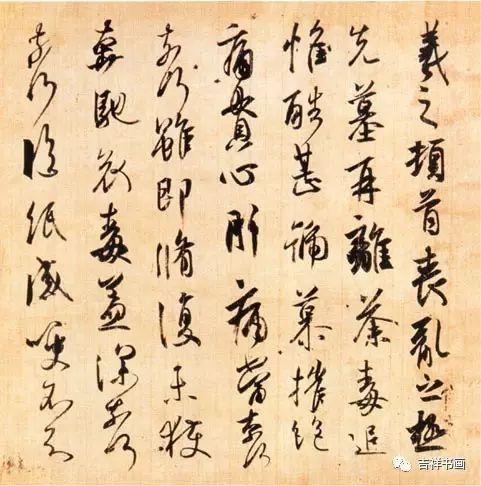 羲之頓首喪亂之極
先墓再離荼毒追
惟酷甚號慕摧絕
痛貫心肝痛當奈何
奈何雖即脩復未獲
奔馳哀毒益深奈何
奈何臨紙感哽不知
吉祥书画